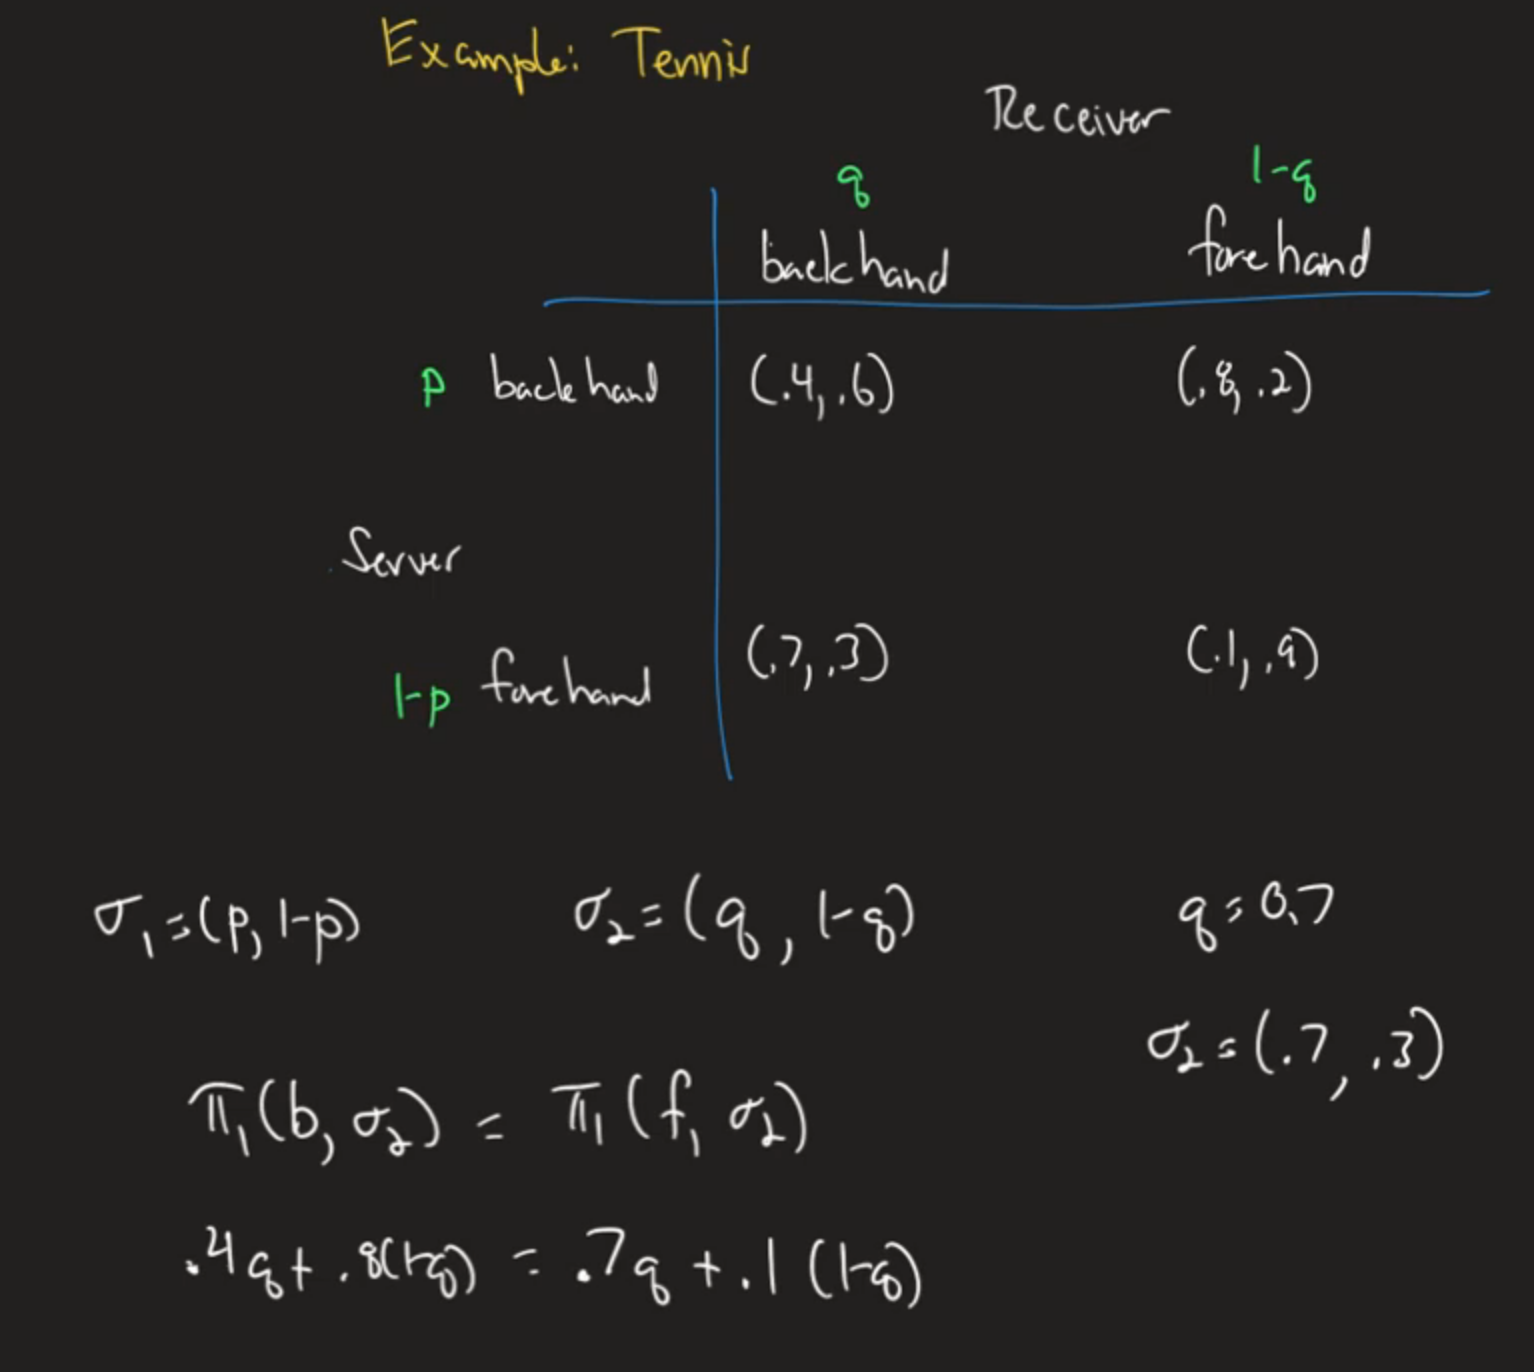 Example: Tennis
Receiver
q 1-q
backhand forehand
p backhand (.4, .6) (.8, .2)
Server
1-p forehand (.7, .3) (.1, .9)
σ₁=(p, 1-p) σ₂=(q, 1-q) q=0.7
σ₂=(.7, .3)
π₁(b, σ₂) = π₁(f, σ₂)
.4q+.8(1-q) = .7q+.1(1-q)